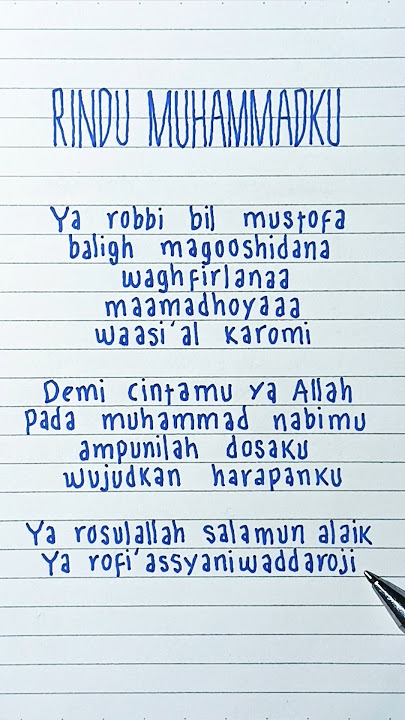 RINDU MUHAMMADKU
Ya robbi bil mustofa
baligh magooshidana
waghfirlanaa
maamadhoyaaa
waasi'al karomi
Demi cintamu ya Allah
pada muhammad nabimu
ampunilah dosaku
wujudkan harapanku
Ya rosulallah salamun alaik
Ya rofi'assyaniwaddaroji